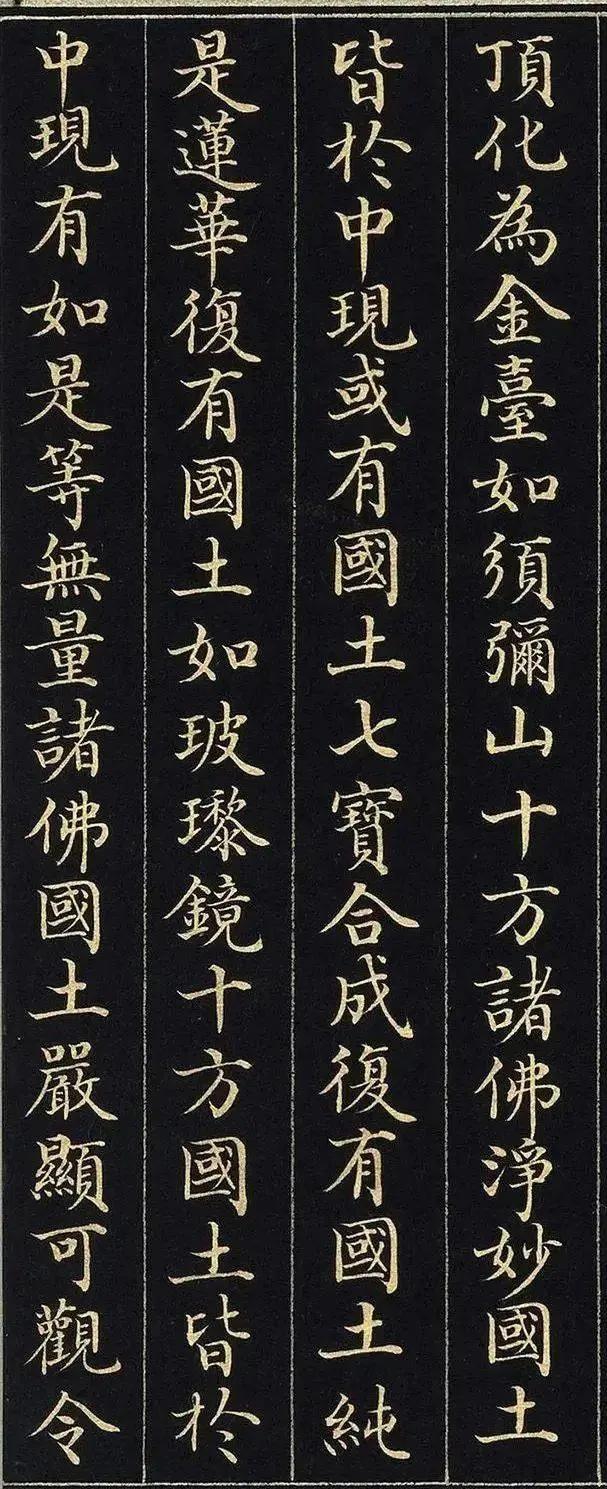 頂化為金臺如須彌山十方諸佛淨妙國土
皆於中現或有國土七寶合成復有國土純
是蓮華復有國土如玻瓈鏡十方國土皆於
中現有如是等無量諸佛國土嚴顯可觀令